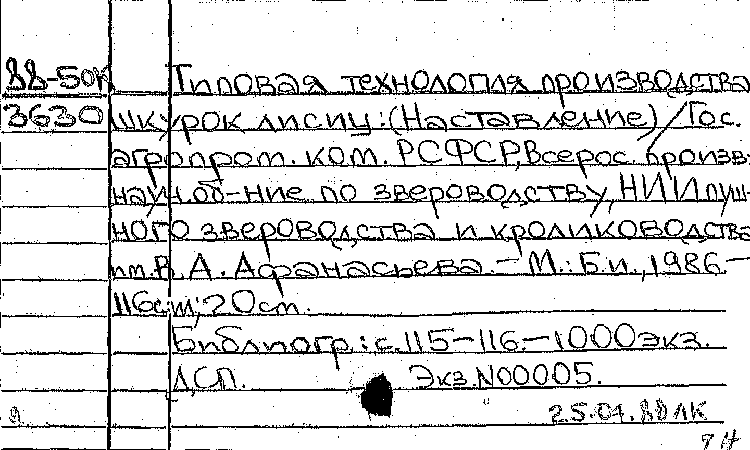 88-50К Типовая технология производства
3630 шкурок лисиц: (Наставление) / Гос.
агропром. ком. РСФСР, Всерос. произв.-
науч. об-ние по звероводству, НИИ пуш-
ного звероводства и кролиководства
им. В. А. Афанасьева. – М.: Б.и., 1986. –
116с.; 20см.
Библиогр.: с. 115–116. – 1000 экз.
ДСП. Экз. N00005.
25.04.88 ЛК